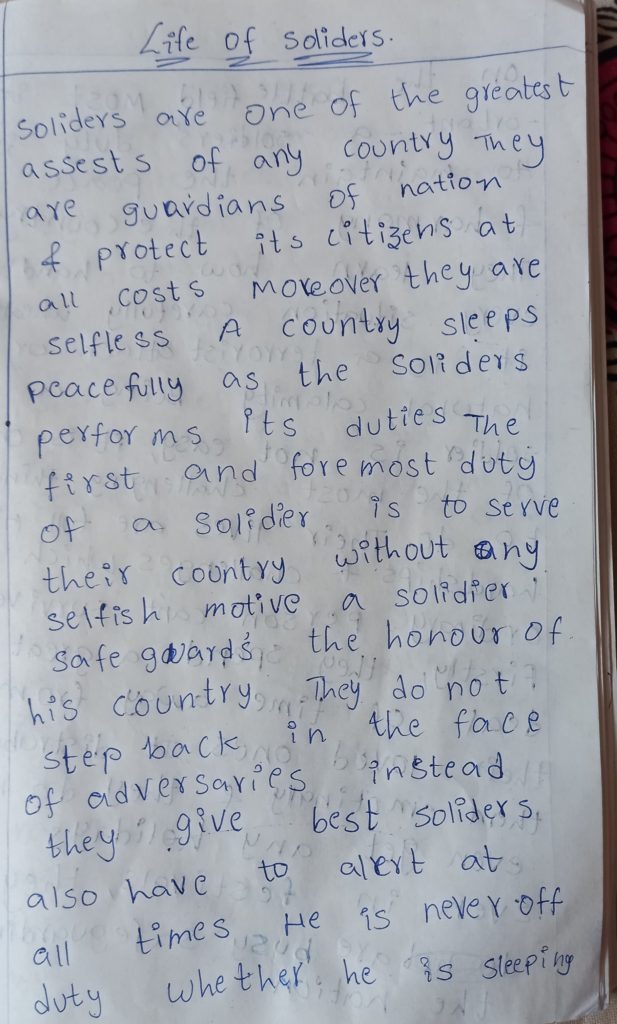 Life of Soliders.
Soliders are one of the greatest
assests of any country They
are guardians of nation
& protect its citizens at
all costs Moreover they are
selfless A country sleeps
peacefully as the Soliders
performs its duties The
first and foremost duty
of a Solidier is to serve
their country without any
selfish motive a solidier
safe guards the honour of
his country. They do not
step back in the face
of adversaries instead
they give best Soliders
also have to alert at
all times He is never off
duty whether he is sleeping